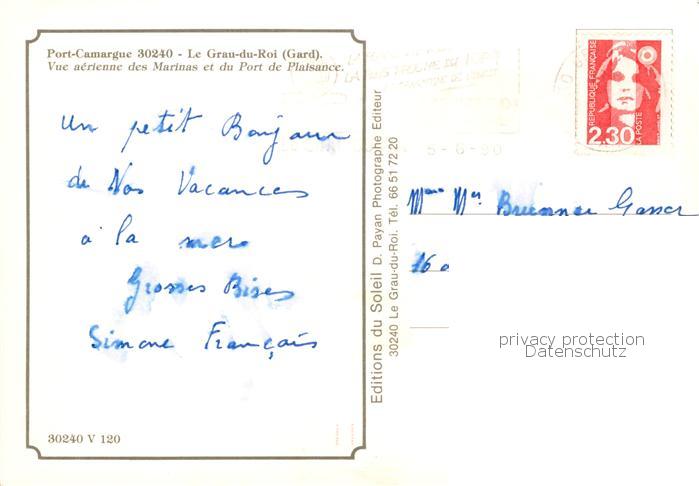 Port-Camargue 30240 - Le Grau-du-Roi (Gard).
Vue aérienne des Marinas et du Port de Plaisance.
un petit Bonjour
de Nos Vacances
a la mer
Grosses Bises
Simone Français
30240 V 120
Editions du Soleil D. Payan Photographe Editeur
30240 Le Grau-du-Roi. Tél. 66 51 72 20
5-6-90
REPUBLIQUE FRANÇAISE
2.30
LA POSTE
Brunner Gasser
16
privacy protection
Datenschutz